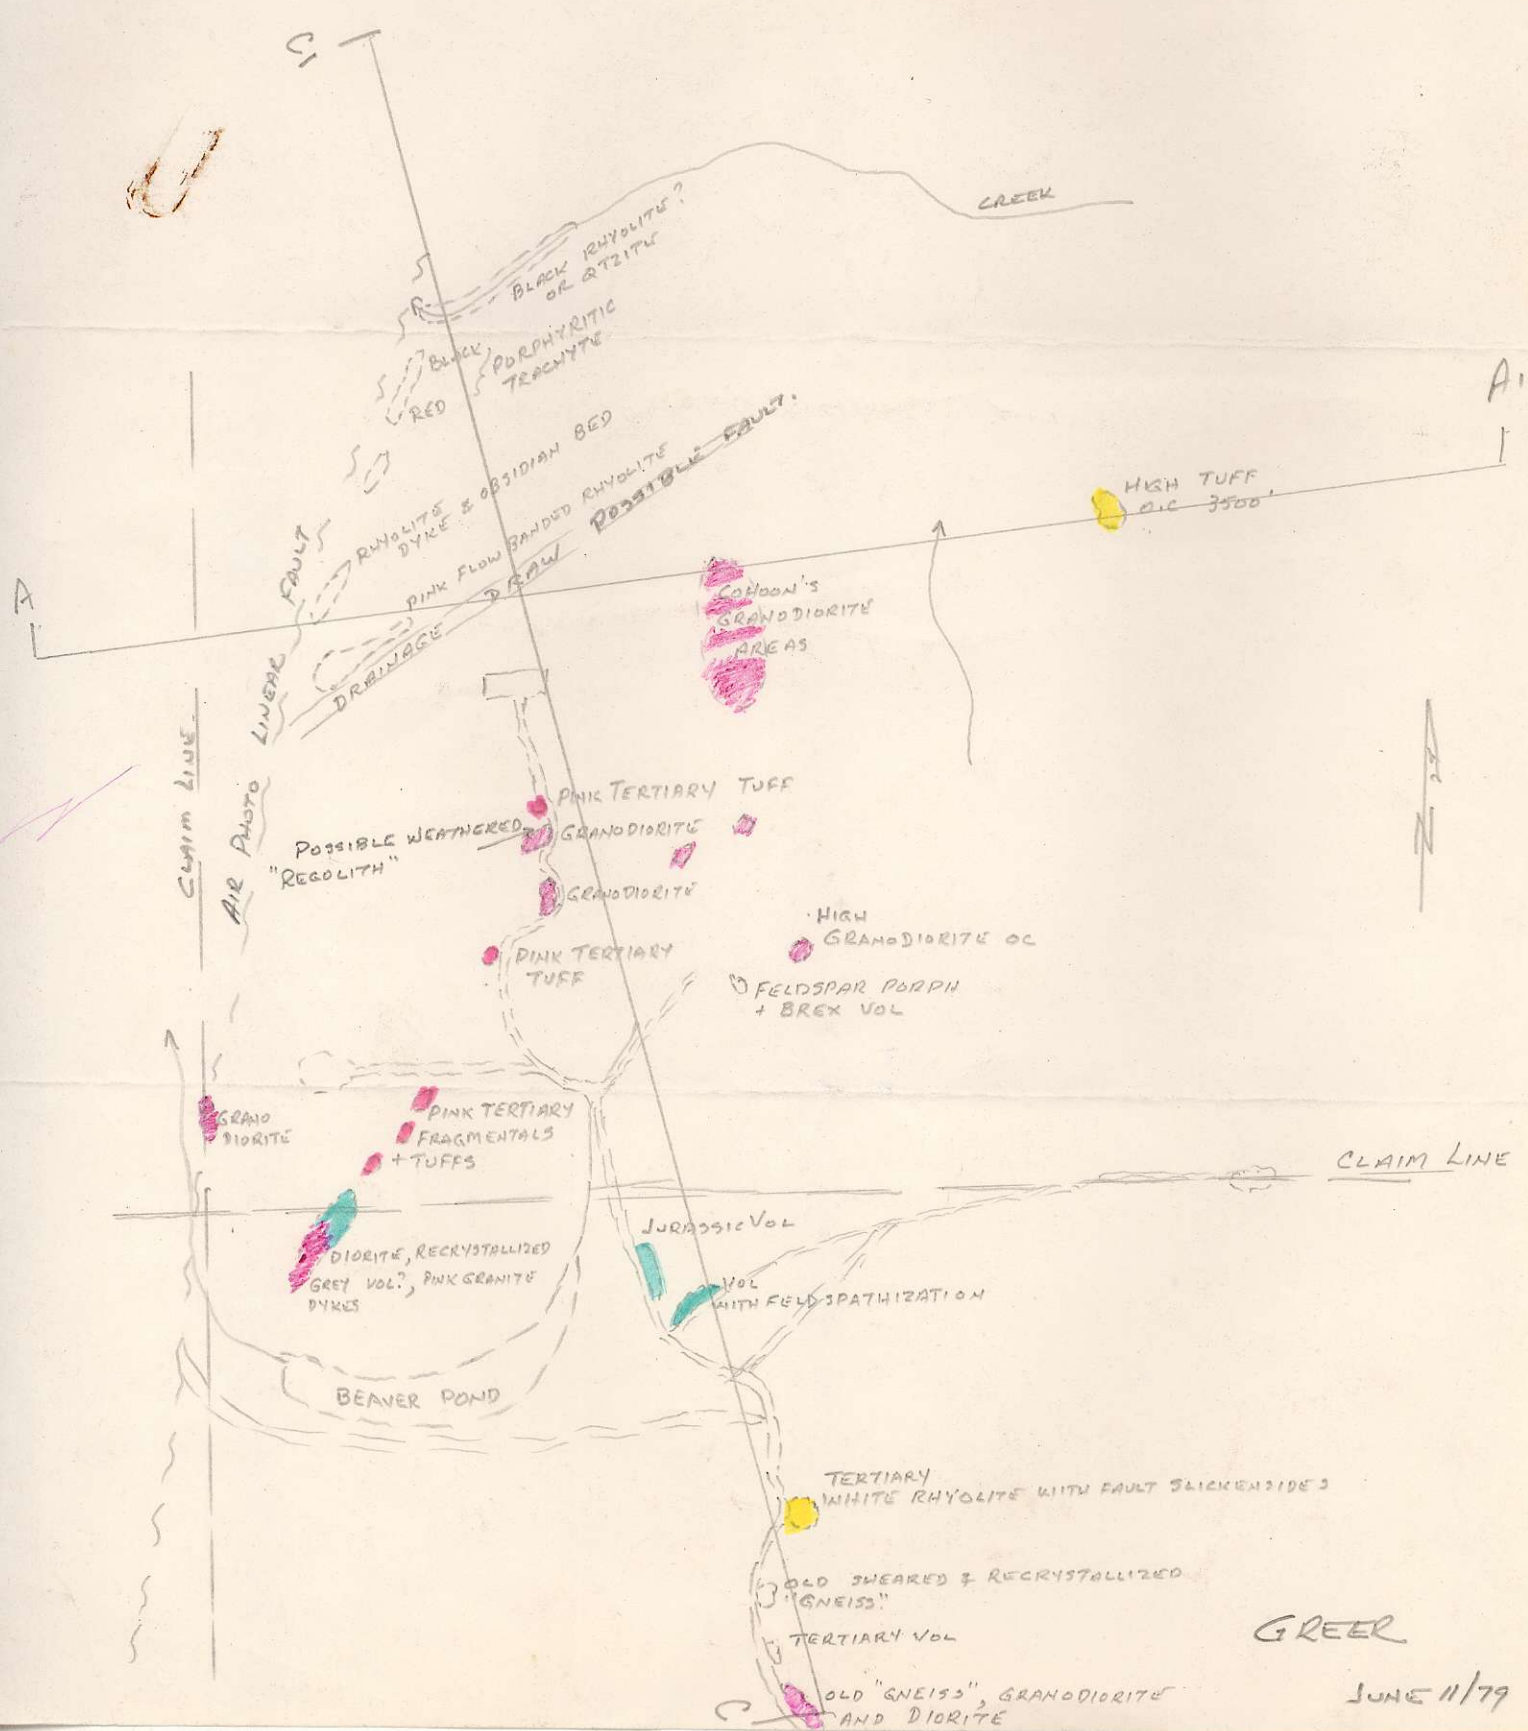 C1
CREEK
BLACK RHYOLITE?
OR QTZITE
BLACK,
RED
PORPHYRITIC
TRACHYTE
A1
HIGH TUFF
O.C 3500'
RHYOLITE
DYKE & OBSIDIAN BED
PINK FLOW BANDED RHYOLITE
DRAINAGE DRAW POSSIBLE FAULT.
A
COHOON'S
GRANODIORITE
AREAS
AIR PHOTO LINEAR FAULT
CLAIM LINE
N
PINK TERTIARY TUFF
POSSIBLE WEATHERED
"REGOLITH"
GRANODIORITE
GRANODIORITE
HIGH
GRANODIORITE OC
PINK TERTIARY
TUFF
FELDSPAR PORPH
+ BREX VOL
GRANO
DIORITE
PINK TERTIARY
FRAGMENTALS
+ TUFFS
CLAIM LINE
JURASSIC VOL
DIORITE, RECRYSTALLIZED
GREY VOL?, PINK GRANITE
DYKES
VOL
WITH FELDSPATHIZATION
BEAVER POND
TERTIARY
WHITE RHYOLITE WITH FAULT SLICKENSIDES
OLD SHEARED & RECRYSTALLIZED
"GNEISS"
TERTIARY VOL
OLD "GNEISS", GRANODIORITE
AND DIORITE
C
GREER
JUNE 11/79